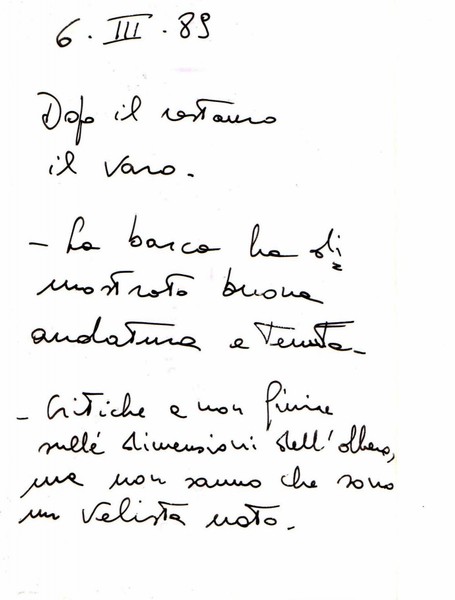 6 . III . 89
Dopo il restauro
il varo.
- La barca ha di
mostrato buona
andatura e tenuta -
- Critiche a non finire
sulle dimensioni dell'albero,
ma non sanno che sono
un velista nato.